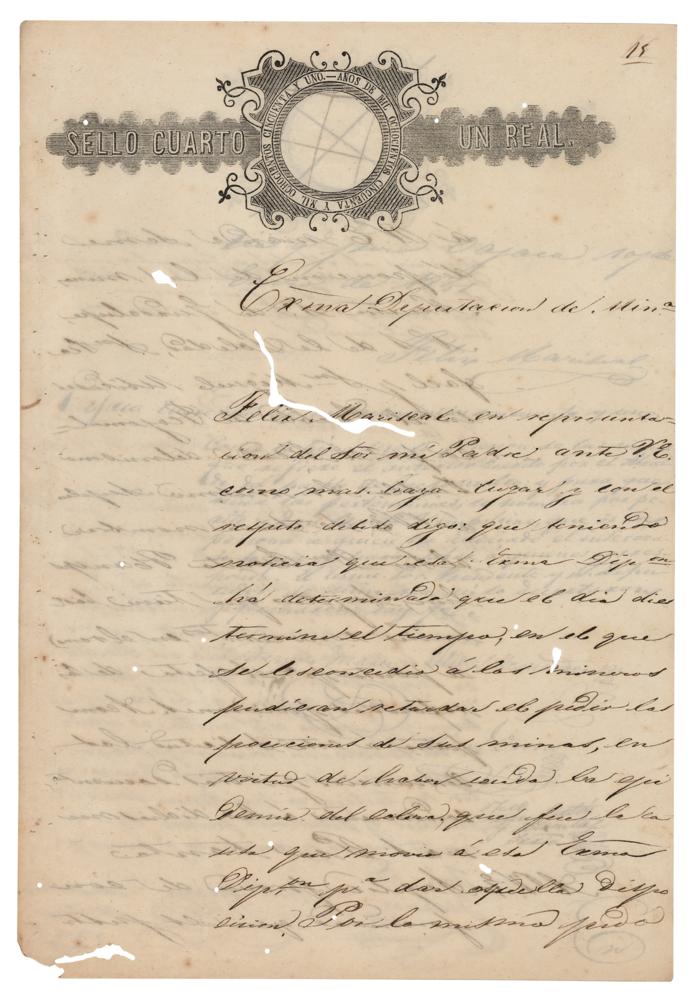 15
SELLO CUARTO
AÑOS DE MIL OCHOCIENTOS CINCUENTA Y MIL OCHOCIENTOS CINCUENTA Y UNO.
UN REAL.
Exma Diputacion de Minª
Felix Mariscal en representa-
cion del Sor mi Padre ante V.E.
como mas haya lugar y con el
respeto debido digo: que teniendo
noticia que esa Exma Dipon
há determinado que el dia dies
termine el tiempo, en el que
se les concedio á los mineros
pudieran retardar el pedir las
poceciones de sus minas, en
virtud de haber la epi
demia del colera, que fue la ca
usa que movio á esa Exma
Dipton pª dar aquella dispo
cicion. Por lo mismo pido